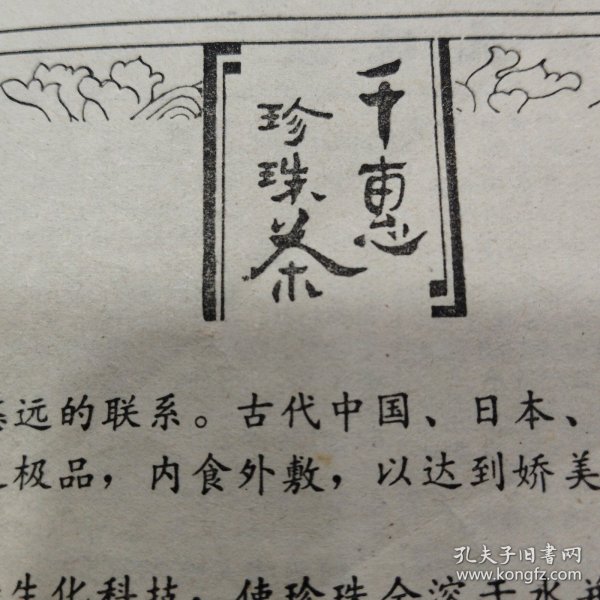 千惠
珍珠茶
远的联系。古代中国、日本、
极品，内食外敷，以达到娇美
生化科技，使珍珠全溶于水并
孔夫子旧书网
www.kongfz.com